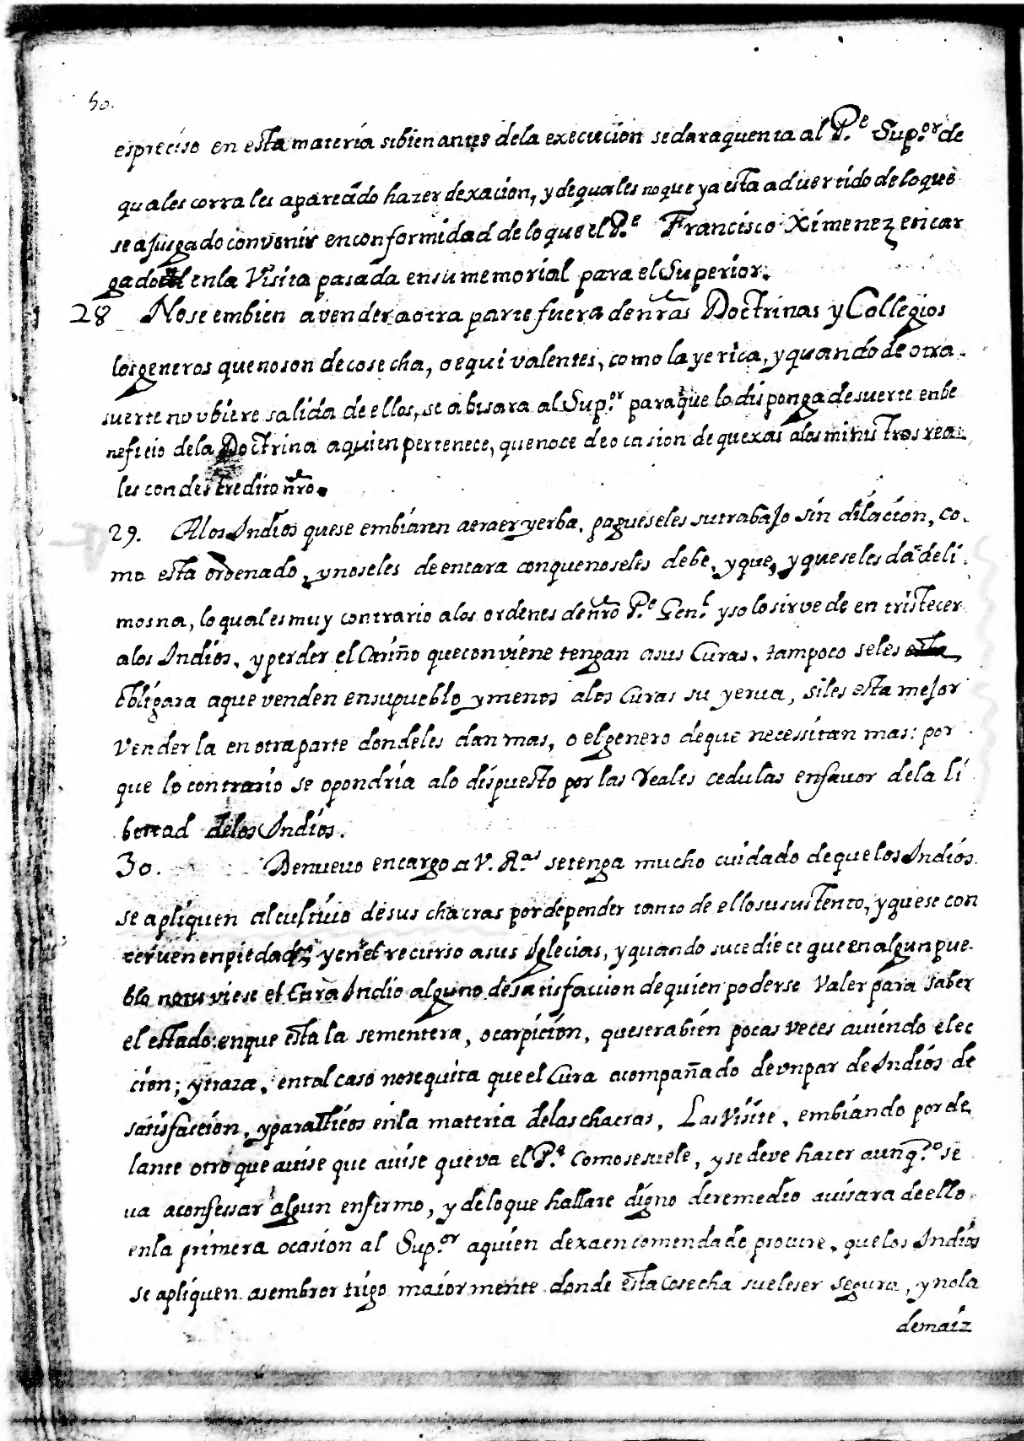 50.
es preciso en esta materia si bien antes de la execucion se dara quenta al P.e Sup.or de
quales corrales aparecido hazer dexacion, y de quales no que ya esta advertido de lo que
se a jusgado convenir en conformidad de lo que el P.e Francisco Ximenez encar
gado en la Visita pasada en su memorial para el Superior.
28 No se embien a vender a otra parte fuera de nras Doctrinas y Collegios
los generos que no son de cosecha, o equivalentes, como la yerva, y quando de otra
suerte no ubiere salida de ellos, se abisara al Sup.or para que lo disponga de suerte en be
neficio de la Doctrina a quien pertenece, que no ce de ocasion de quexas a los ministros rea
les con descredito nro.
29. A los Indios que se embiaren a traer yerba, pagueseles su trabajo sin dilacion, co.
mo esta ordenado, y no se les de en tara con que no se les debe, y que, y que se les da de li.
mosna, lo qual es muy contrario a los ordenes de nro P.e Gen.l y solo sirve de entristecer
a los Indios, y perder el Cariño que conviene tengan a sus Curas, tampoco se les
obligara a que venden en su pueblo y menos a los Curas su yerva, si les esta mejor
Vender la en otra parte donde les dan mas, o el genero de que necessitan mas: por
que lo contrario se opondria a lo dispuesto por las Reales cedulas en favor de la li
bertad de los Indios.
30. De nuevo encargo a V. R.as se tenga mucho cuidado de que los Indios
se apliquen al cultivo de sus chacras por depender tanto de ello su sustento, y que se con
cerven en piedad, y en el recurso a sus Iglecias, y quando sucediece que en algun pue.
blo no tuviese el Cura Indio alguno de satisfaccion de quien poderse Valer para saber
el estado en que esta la sementera, o carpicion, que sera bien pocas veces aviendo elec
cion; y traza, en tal caso no se quita que el Cura acompañado de un par de Indios de
satisfaccion, y praticos en la materia de las chacras, Las Visite, embiando por de
lante otro que avise que avise que va el P.e como se suele, y se deve hazer aunq.o se
va a confessar algun enfermo, y de lo que hallare digno de remedio avisara de ello
en la primera ocasion al Sup.or a quien dexa encomendado procure, que los Indios
se apliquen a sembrar trigo maiormente donde esta cosecha suele ser segura, y no la
de maiz